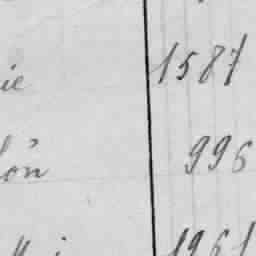 ie 1587
lön 996
1961